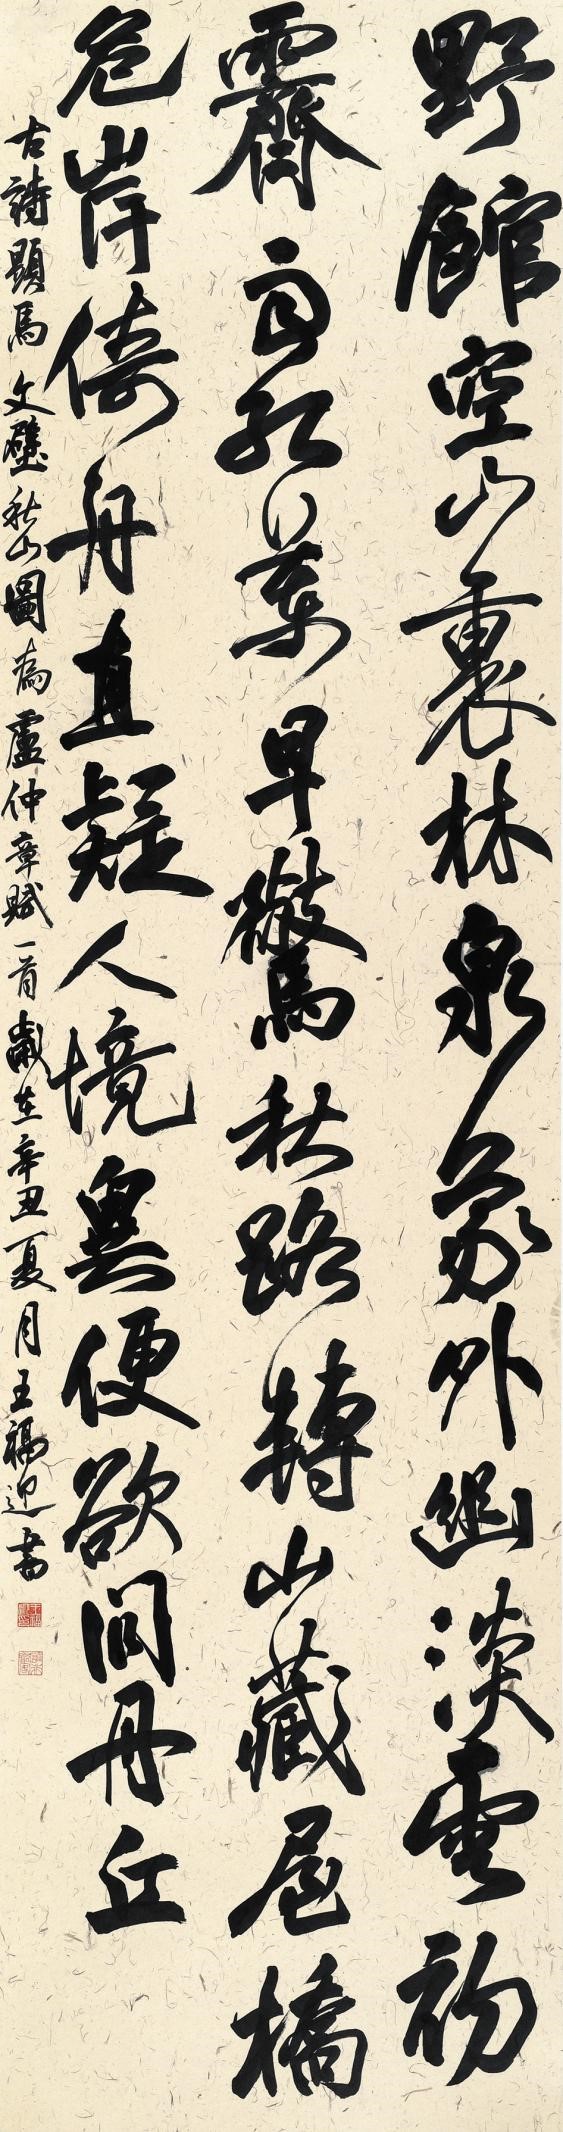 野館空山裏林泉象外幽淡雲初
霽雨紅葉早驚秋路轉山藏屋橋
危岸倚舟直疑人境異便欲問丹丘
古詩題馬文璧秋山圖為盧仲章賦一首歲在辛丑夏月王福迎書